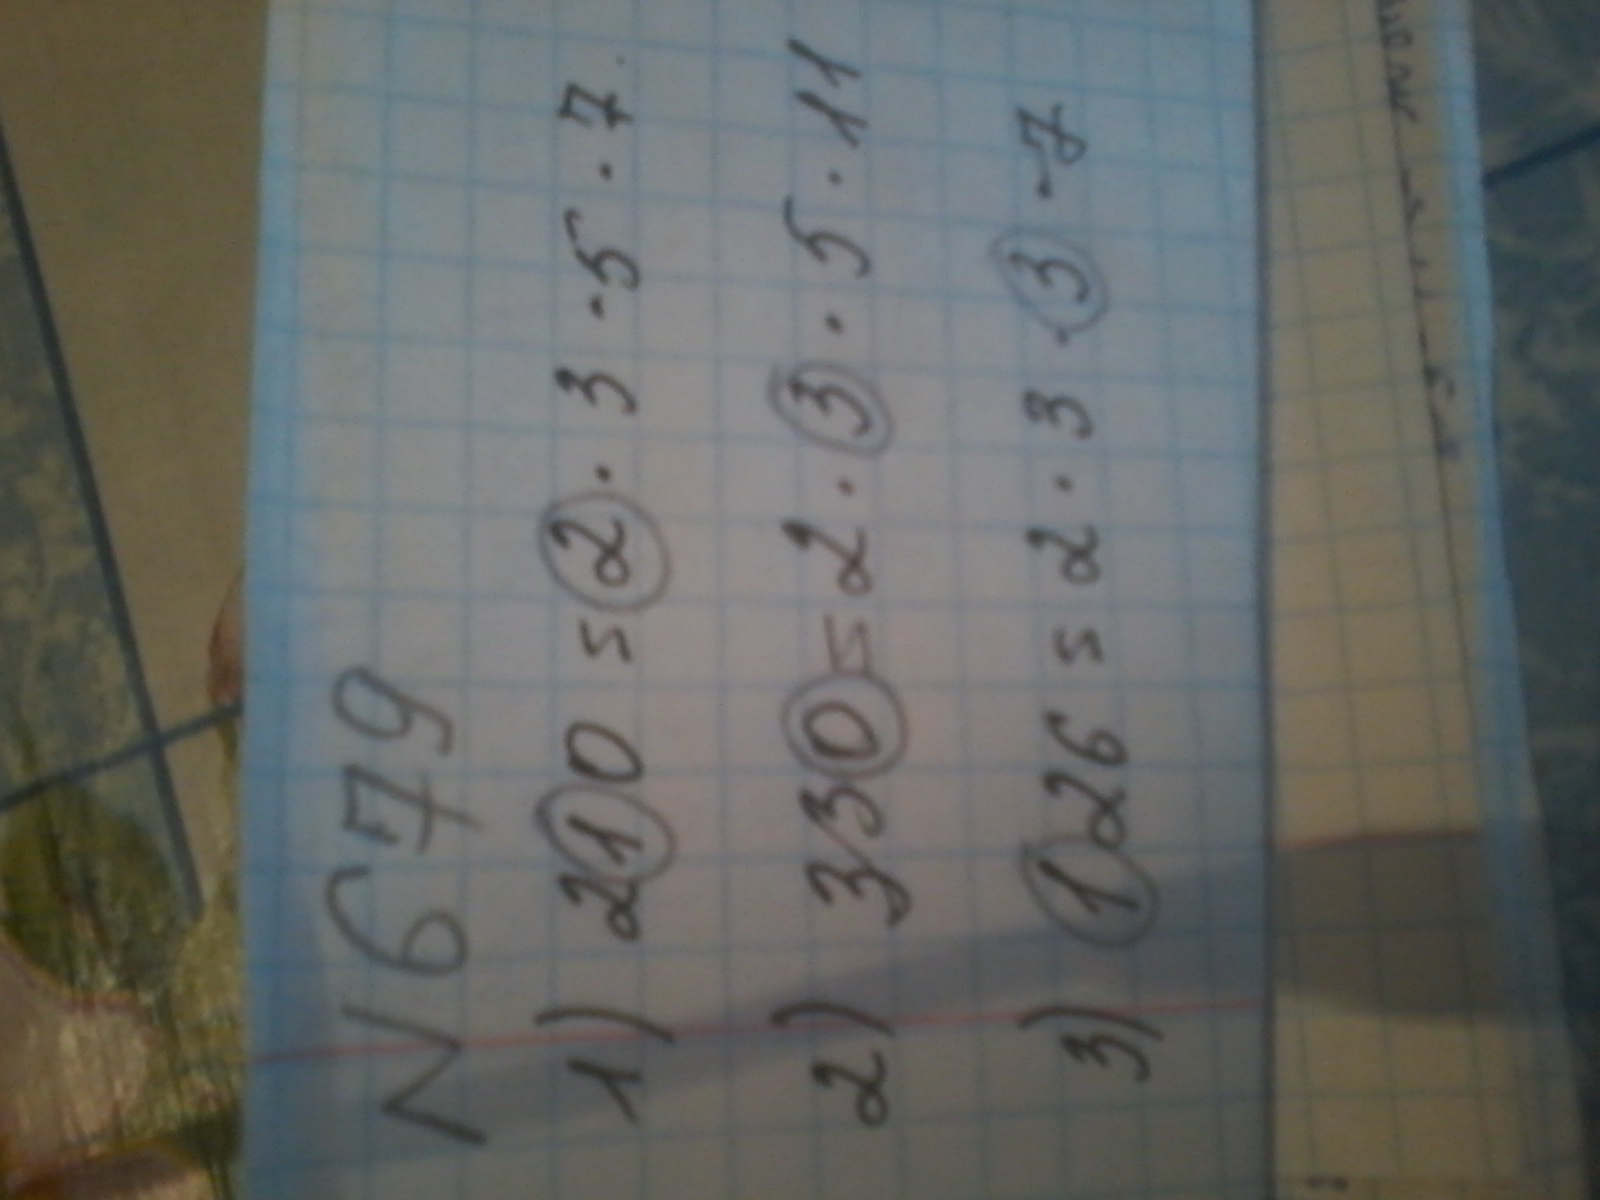 N 679
1) 210 = 2 · 3 · 5 · 7.
2) 330 = 2 · 3 · 5 · 11
3) 126 = 2 · 3 · 3 · 7